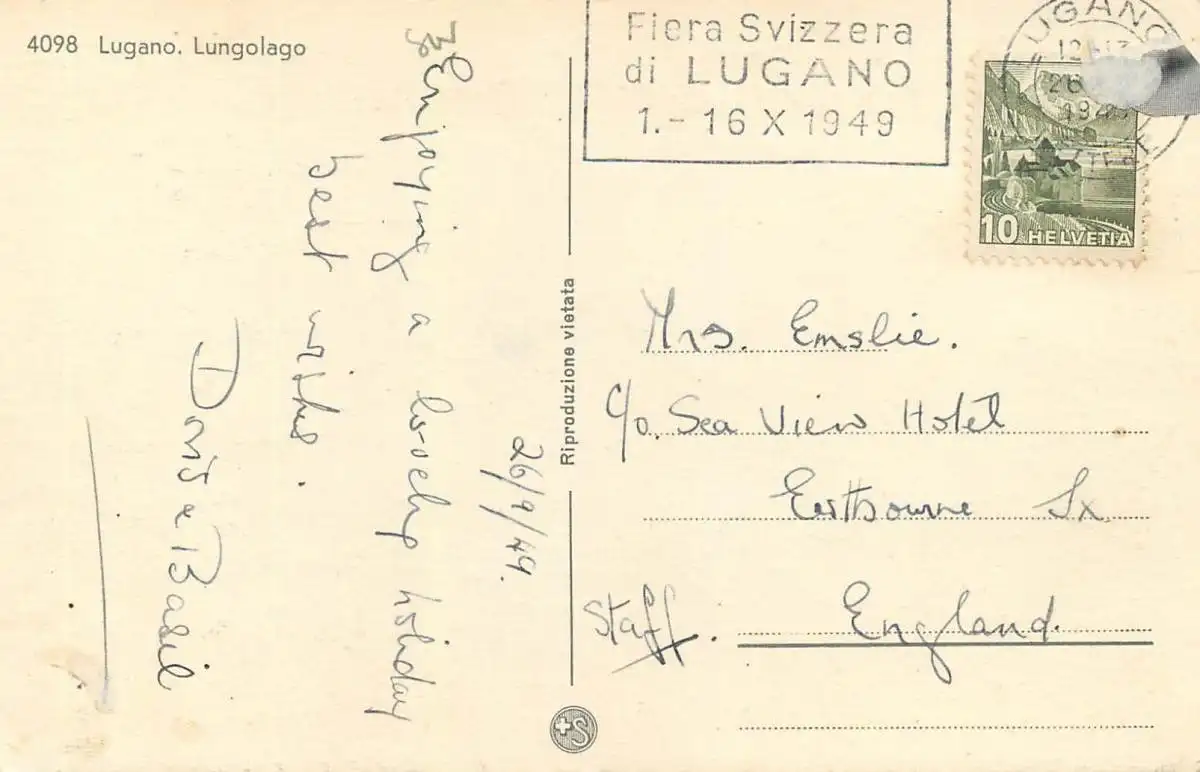 4098 Lugano. Lungolago
Fiera Svizzera
di LUGANO
1.- 16 X 1949
LUGANO
10 HELVETIA
26/9/49.
Enjoying a lovely holiday
best wishes.
Doris & Basil
Riproduzione vietata
Mrs. Emslie.
c/o. Sea View Hotel
Eastbourne Sx
England.
Staff.
S